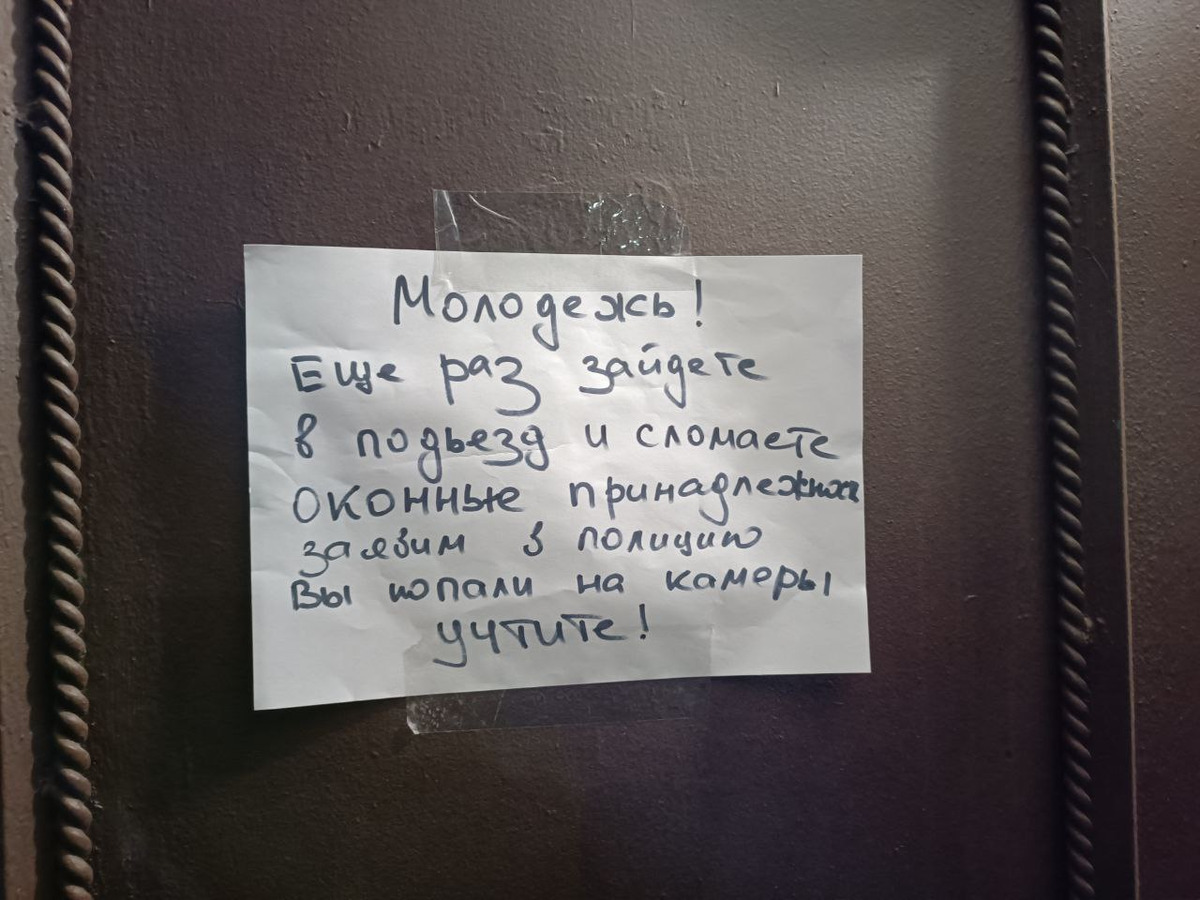 Молодежь!
Еще раз зайдете
в подьезд и сломаете
оконные принадлежнха
заявим в полицию
Вы попали на камеры
учтите!